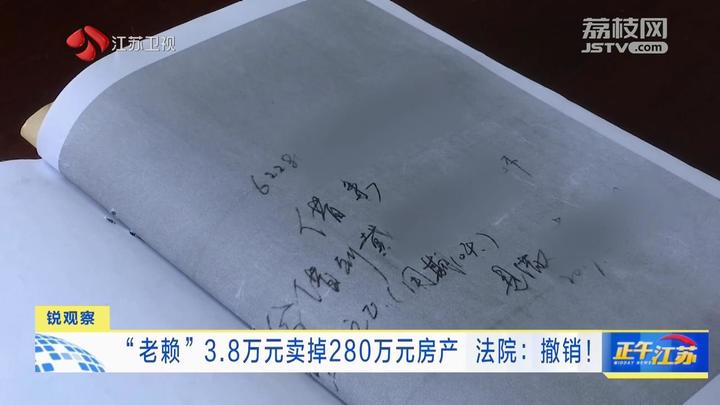 江苏卫视
荔枝网
JSTV.com
6228
借条
今借到黄
锐观察
“老赖”3.8万元卖掉280万元房产 法院：撤销！
正午江苏
MIDDAY NEWS